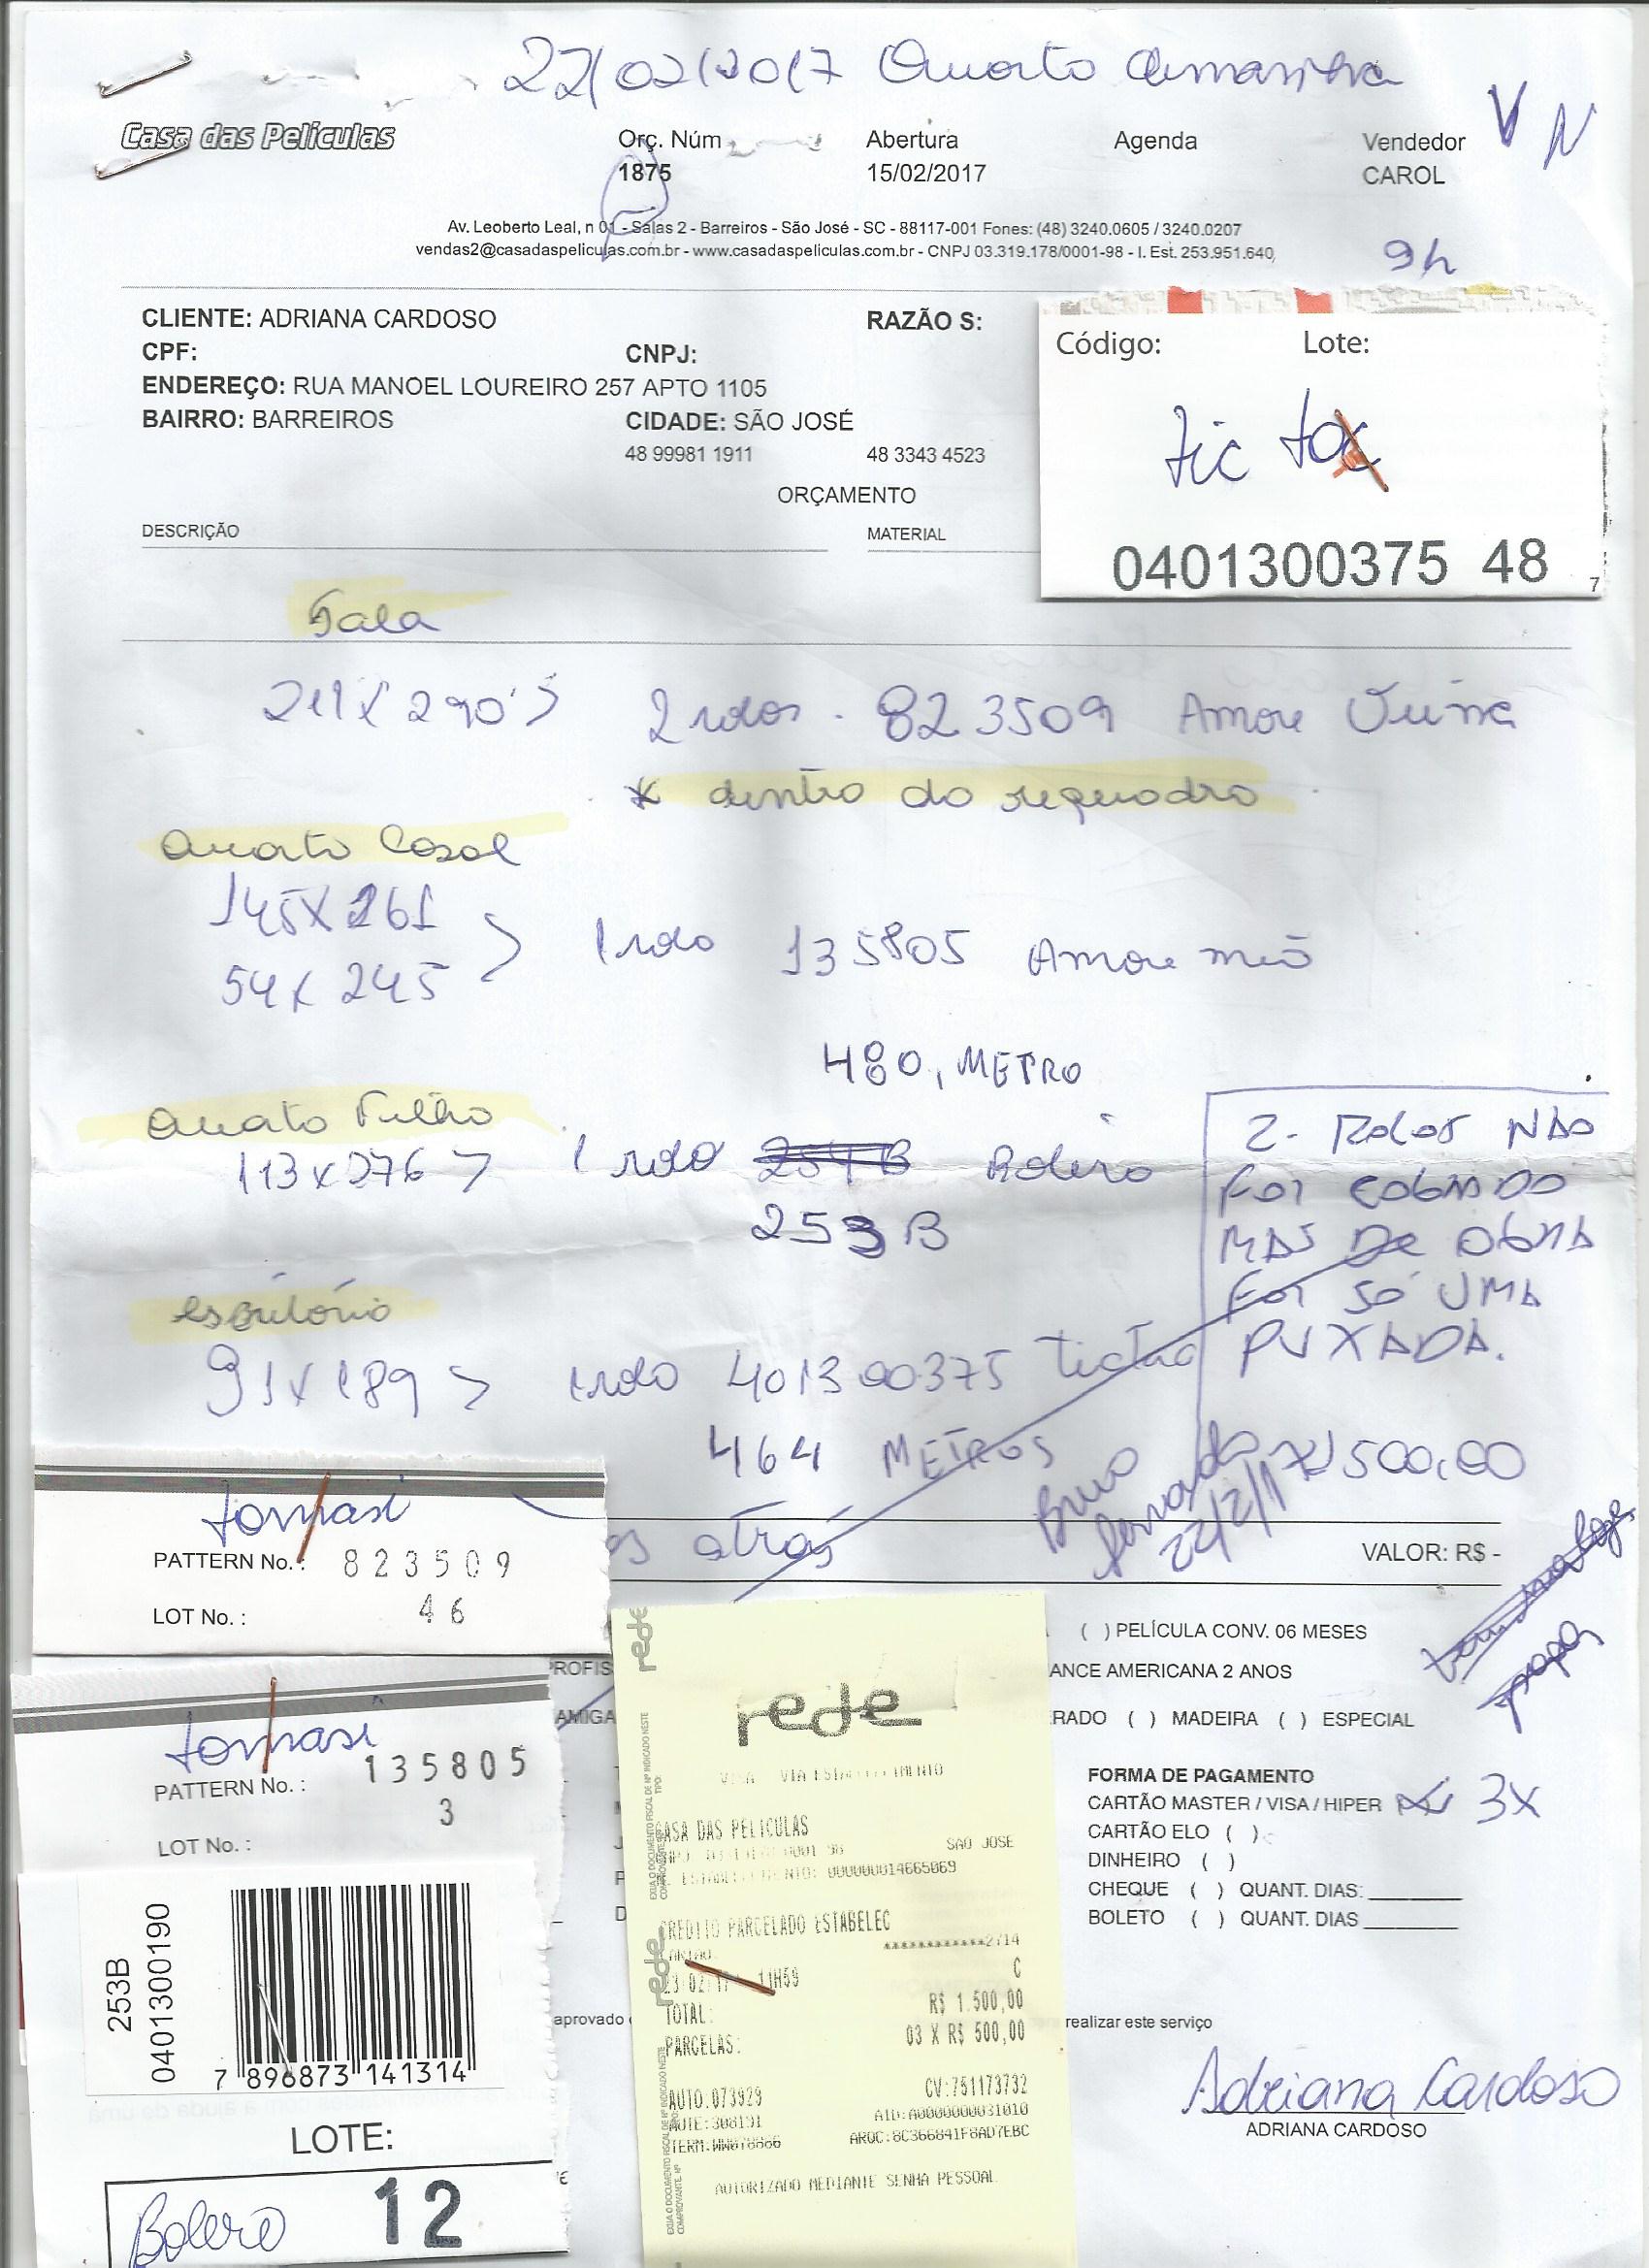 22/02/2017 Quarta
V N
Casa das Películas
Orç. Núm Abertura Agenda Vendedor
1875 15/02/2017 CAROL
Av. Leoberto Leal, n 01 - Salas 2 - Barreiros - São José - SC - 88117-001 Fones: (48) 3240.0605 / 3240.0207
vendas2@casadaspeliculas.com.br - www.casadaspeliculas.com.br - CNPJ 03.319.178/0001-98 - I. Est. 253.951.640
9h
CLIENTE: ADRIANA CARDOSO RAZÃO S:
CPF: CNPJ:
ENDEREÇO: RUA MANOEL LOUREIRO 257 APTO 1105
BAIRRO: BARREIROS CIDADE: SÃO JOSÉ
48 99981 1911 48 3343 4523
ORÇAMENTO
DESCRIÇÃO MATERIAL
Código: Lote:
tic tac
0401300375 48
7
Sala
211 x 290 > 2 rolos - 823509 Amore
* dentro do requadro
Quarto Casal
145 x 261
54 x 245 > 1 rolo 135805 Amore mio
480, METRO
Quarto Filho
113 x 276 > 1 rolo 254B Bolero
253B
2- ROLOS NÃO
FOI COBRADO
MAS DE OBRA
FOI SÓ UMA
PUXADA.
escritório
91 x 189 > 1 rolo 401300375 tictac
464 METROS
1500,00
atrás
22/2/1
VALOR: R$ -
tomasi
PATTERN No.: 823509
LOT No. : 46
tomasi
PATTERN No. : 135805
3
LOT No. :
253B
0401300190
7 896873 141314
LOTE:
Bolero 12
( ) PELÍCULA CONV. 06 MESES
ANCE AMERICANA 2 ANOS
RADO ( ) MADEIRA ( ) ESPECIAL
PROFIS
AMIGA
papa
FORMA DE PAGAMENTO
CARTÃO MASTER / VISA / HIPER 3x
CARTÃO ELO ( )
DINHEIRO ( )
CHEQUE ( ) QUANT. DIAS:
BOLETO ( ) QUANT. DIAS
aprovado
realizar este serviço
Adriana Cardoso
ADRIANA CARDOSO
rede
VISA VIA ESTABELECIMENTO
CASA DAS PELICULAS
SAO JOSE
000000014665069
CREDITO PARCELADO ESTABELEC
************2714
23/02/17 11H59 C
TOTAL: R$ 1.500,00
PARCELAS: 03 X R$ 500,00
AUTO:073929 CV:751173732
AUTE:308191 AID:A0000000031010
TERM:WW078866 ARQC:8C366841F8AD7EBC
AUTORIZADO MEDIANTE SENHA PESSOAL